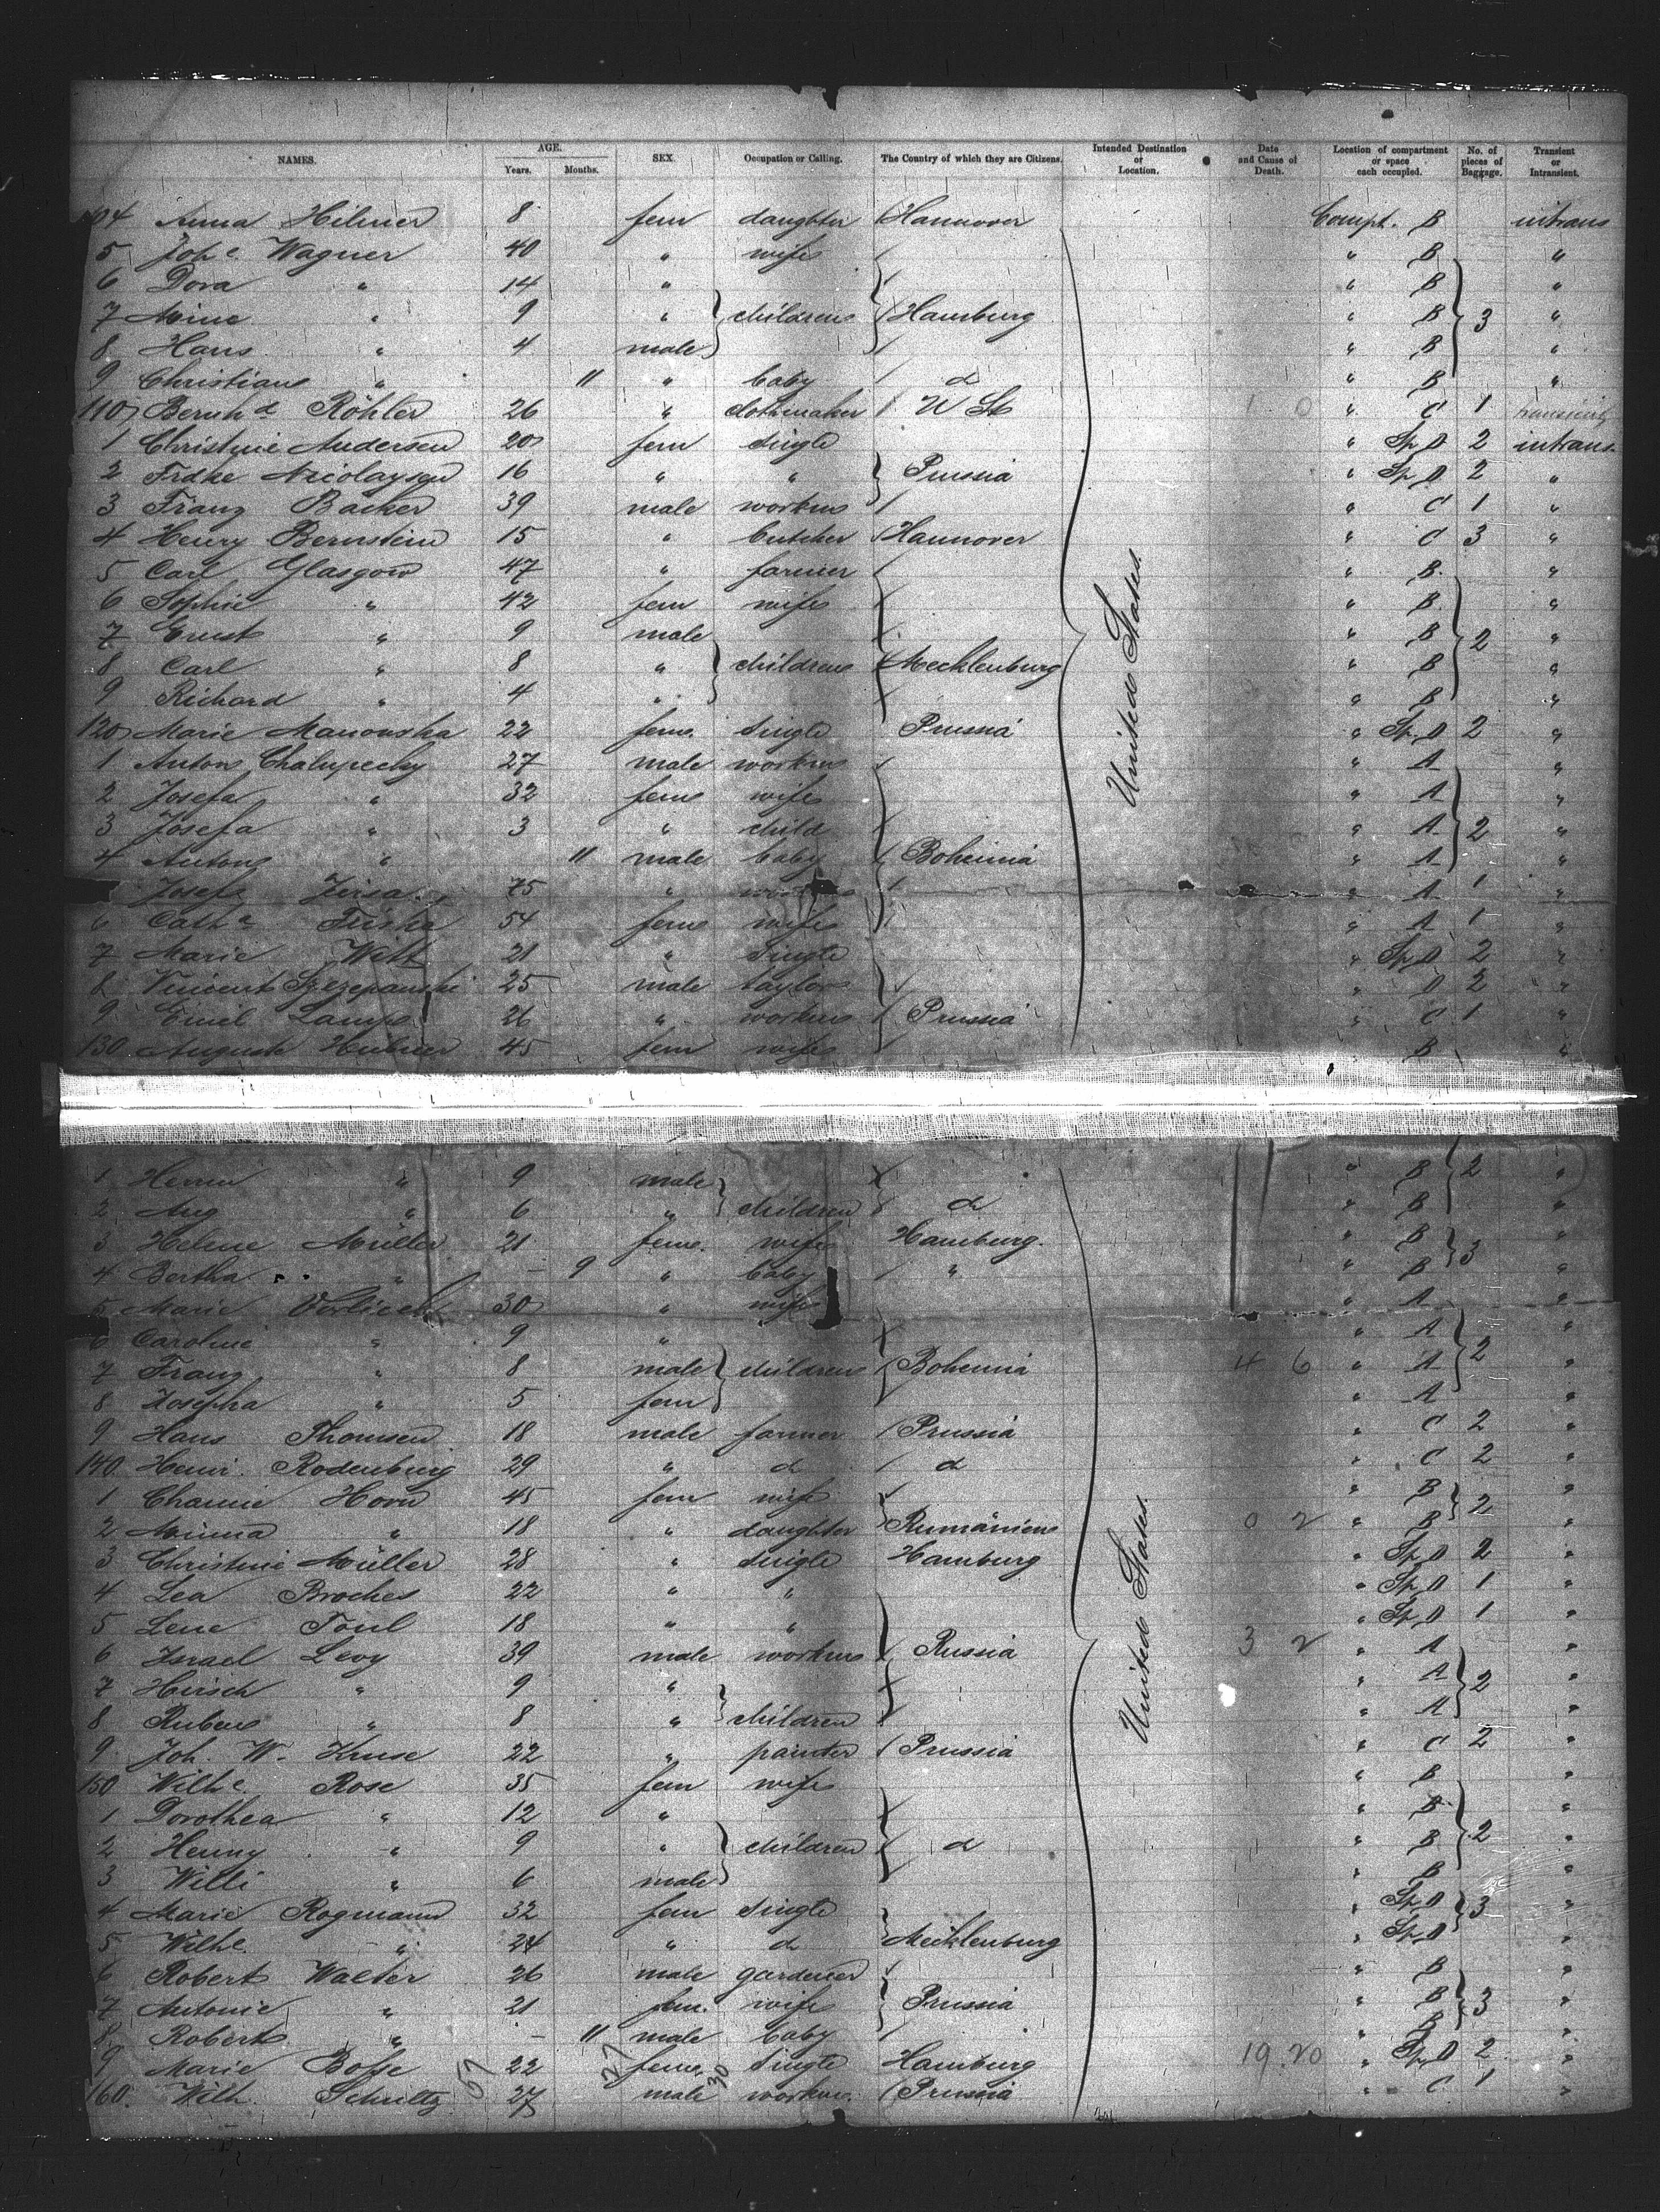 NAMES. AGE. Years. Months. SEX. Occupation or Calling. The Country of which they are Citizens. Intended Destination or Location. Date and Cause of Death. Location of compartment or space each occupied. No. of pieces of Baggage. Transient or Intransient.
104 Anna Hilmer 8 fem daughter Hannover Compt. B intrans
5 Johe. Wagner 40 " wife " B "
6 Dora " 14 " " B "
7 Mine " 9 " children Hamburg " B 3 "
8 Hans " 4 male " B "
9 Christian " 11 " baby d " B "
110 Bernhd Röhler 26 " clothmaker U St " C 1
1 Christine Andersen 20 fem single " Sp D 2 intrans
2 Frdke Nicolaysen 16 " " Prussia " Sp D 2 "
3 Franz Backer 39 male workm " C 1 "
4 Henry Bernstein 15 " butcher Hannover " C 3 "
5 Carl Glasgow 47 " farmer " B "
6 Sophie " 42 fem wife " B "
7 Ernst " 9 male " B 2 "
8 Carl " 8 " children Mecklenburg " B "
9 Richard " 4 " " B "
120 Marie Manouska 22 fem. single Prussia " Sp. D 2 "
1 Anton Chalupecky 27 male workm " A "
2 Josefa " 32 fem wife " A "
3 Josefa " 3 " child " A 2 "
4 Anton " 11 male baby Bohemia " A "
Josef Zirsa 75 " " A 1 "
6 Catha Trisha 54 fem wife " A 1 "
7 Marie Witt 21 " single " Sp D 2 "
8 Vincent Szczepanski 25 male taylor " D 2 "
9 Emil Lamp 26 " workm Prussia " C 1 "
130 Auguste Hubner 45 fem wife B "
United States.
1 Herm " 9 male " B 2 "
2 Aug " 6 " children d " B "
3 Helene Müller 21 fem. wife Hamburg. " B 3 "
4 Bertha " - 9 " baby " " B "
5 Marie 30 " wife " A "
6 Caroline " 9 " " A "
7 Franz " 8 male children Bohemia 4 6 " A 2 "
8 Josepha " 5 fem " A "
9 Hans Thomsen 18 male farmer Prussia " C 2 "
140. Henri. Rodenburg 29 " d d " C 2 "
1 Channe Horn 45 fem wife " B "
2 Minna " 18 " daughter Rumänien 0 2 " B 2 "
3 Christine Müller 28 " single Hamburg " Sp D 2 "
4 Lea Broches 22 " " " Sp D 1 "
5 Lene Toul 18 " " " Sp D 1 "
6 Israel Levy 39 male workm Russia 3 2 " A "
7 Hirsch " 9 " " A 2 "
8 Ruben " 8 " children " A "
9. Joh. W. Kruse 22 " painter Prussia " C 2 "
150 Wilhe. Rose 35 fem wife " B "
1 Dorothea " 12 " " B "
2 Henny " 9 " children d " B 2 "
3 Willi " 6 male " B "
4 Marie Rogmann 32 fem single " Sp D 3 "
5 Wilhe. " 24 " d Mecklenburg Sp D
6 Robert Walter 26 male gardener " B "
7 Antonie " 21 fem. wife Prussia " B 3 "
8 Robert " - 11 male baby " B "
9 Marie Bosse 22 fem. single Hamburg 19.20 " Sp D 2 "
160. Wilh. Schultz 27 male workm. Prussia " C 1 "
United States.
57 27 30